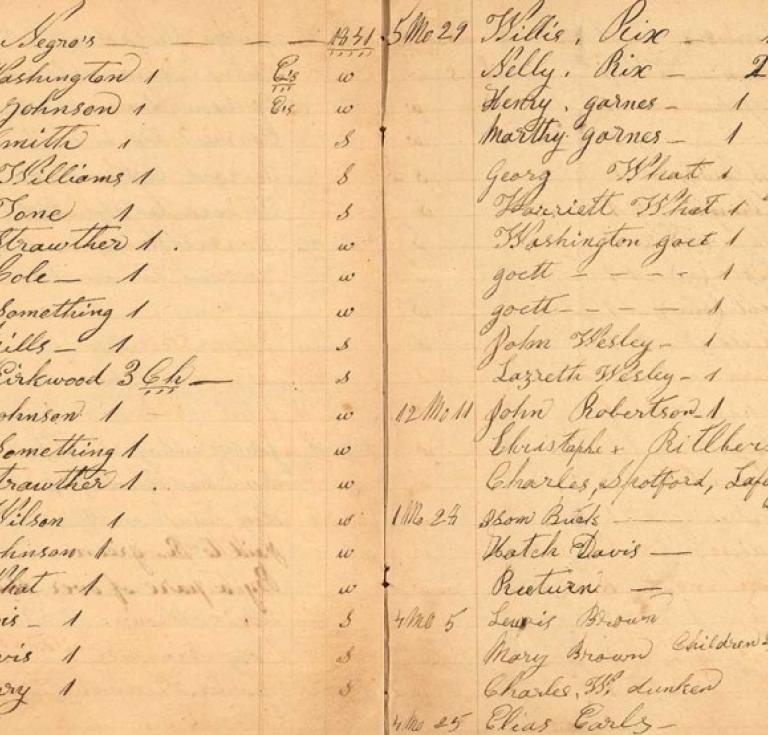 Negro's — — — 1831
Washington 1 Cis w
Johnson 1 Cis w
Smith 1 S
Williams 1 S
Tone 1 S
Strawther 1 . w
Cole — 1 w
Something 1 w
ills — 1 S
Kirkwood 3 Ch — S
Johnson 1 w
Something 1 w
Strawther 1 . w
Wilson 1 w
Johnson 1 w
What 1 w
is — 1 S
vis 1 S
ry 1 S
5 Mo 29 Willis, Rix —
Nelly, Rix — 2
Henry, garnes — 1
Marthy garnes — 1
Georg What 1
Harriett What 1
Washington goet 1
goett - - - - 1
goett - - - - 1
John Wesley - 1
Lazreth Wesley - 1
12 Mo 11 John Robertson - 1
Charles, Spotford,
1 Mo 28
Hatch Davis —
Reeturn —
4 Mo 5 Lewis Brown
Mary Brown Children
Charles, W. dunken
4 Mo 25 Elias Earls —